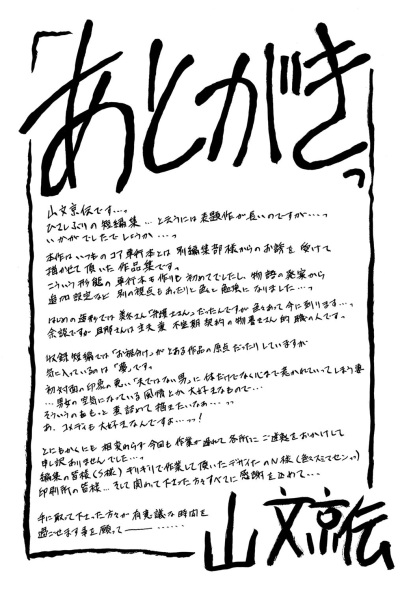 「あとがきっ
山文京伝です…っ
ひさしぶりの短編集…と云うには表題作が長いのですが…っ
いかがでしたでしょうか…っ
本作はいつものコア単行本とは別編集部様からのお話を受けて
描かせて頂いた作品集ですっ
こういう形態の単行本も作りも初めてでしたし、物語の発案から
追加設定など 別の視点もあったりと色々勉強になりました…っ
はじめの連形では美弥さん「弁護士さん」だったんですが色々あって今に到ります…っ
余談ですが旦那さんは
不定期契約の物書きさん的
職の人ですっ
収録短編では「お裾分け」がとある作品の原点だったりしていますが
気に入っているのは「夢」ですっ
初対面の印象の悪い「夫ではない男」に体だけでなく心まで惹かれていってしまう妻
…男女の空気になっている風情とか大好きなもので…
そういうのをもっと煮詰めて描きたいなぁ…っっ
あ、コメディも大好きなんですよ…っっ!
とにもかくにも相変わらず今回も作業が遅れて各所にご迷惑をおかけして
申し訳ありませんでした…っ
編集の皆様(S様)ギリギリで作業して頂いたデザイナーのN様(色々スミマセンっっ)
印刷所の皆様…そして関わって下さった方々すべてに感謝を込めて…
手に取って下さった方々が有意義な時間を
過ごせます事を願って―――……
山文京伝